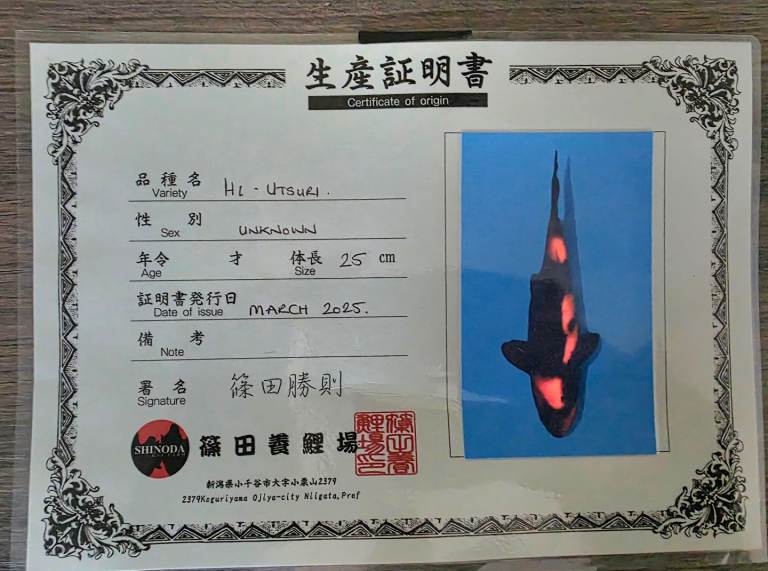 生産証明書
Certificate of origin
品種名 HI - UTSURI.
Variety
性別 UNKNOWN
Sex
年令 才 体長 25 cm
Age Size
証明書発行日 MARCH 2025.
Date of issue
備考
Note
署名 篠田勝則
Signature
SHINODA 篠田養鯉場
新潟県小千谷市大字小栗山2379
2379Koguriyama Ojiya-city Niigata,Pref